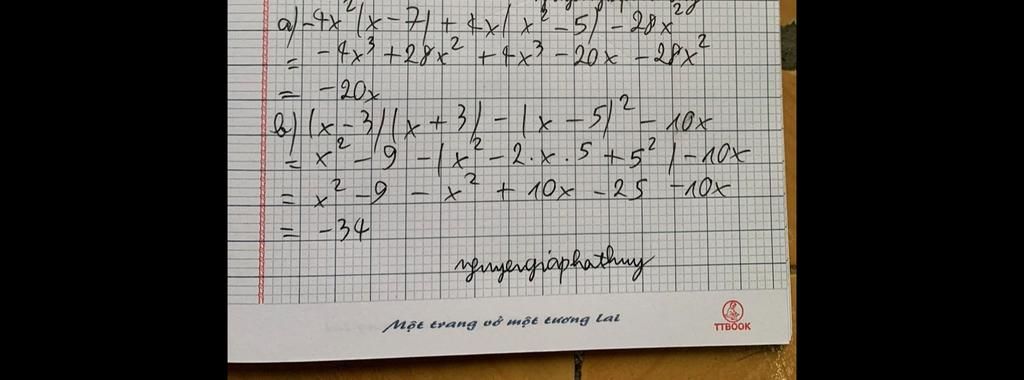 a) -4x²(x - 7) + 4x(x² - 5) - 28x²
= -4x³ + 28x² + 4x³ - 20x - 28x²
= -20x
b) (x - 3)(x + 3) - (x - 5)² - 10x
= x² - 9 - (x² - 2.x.5 + 5²) - 10x
= x² - 9 - x² + 10x - 25 - 10x
= -34
nguyengiaphathuy
Một trang vở một tương lai
TTBOOK